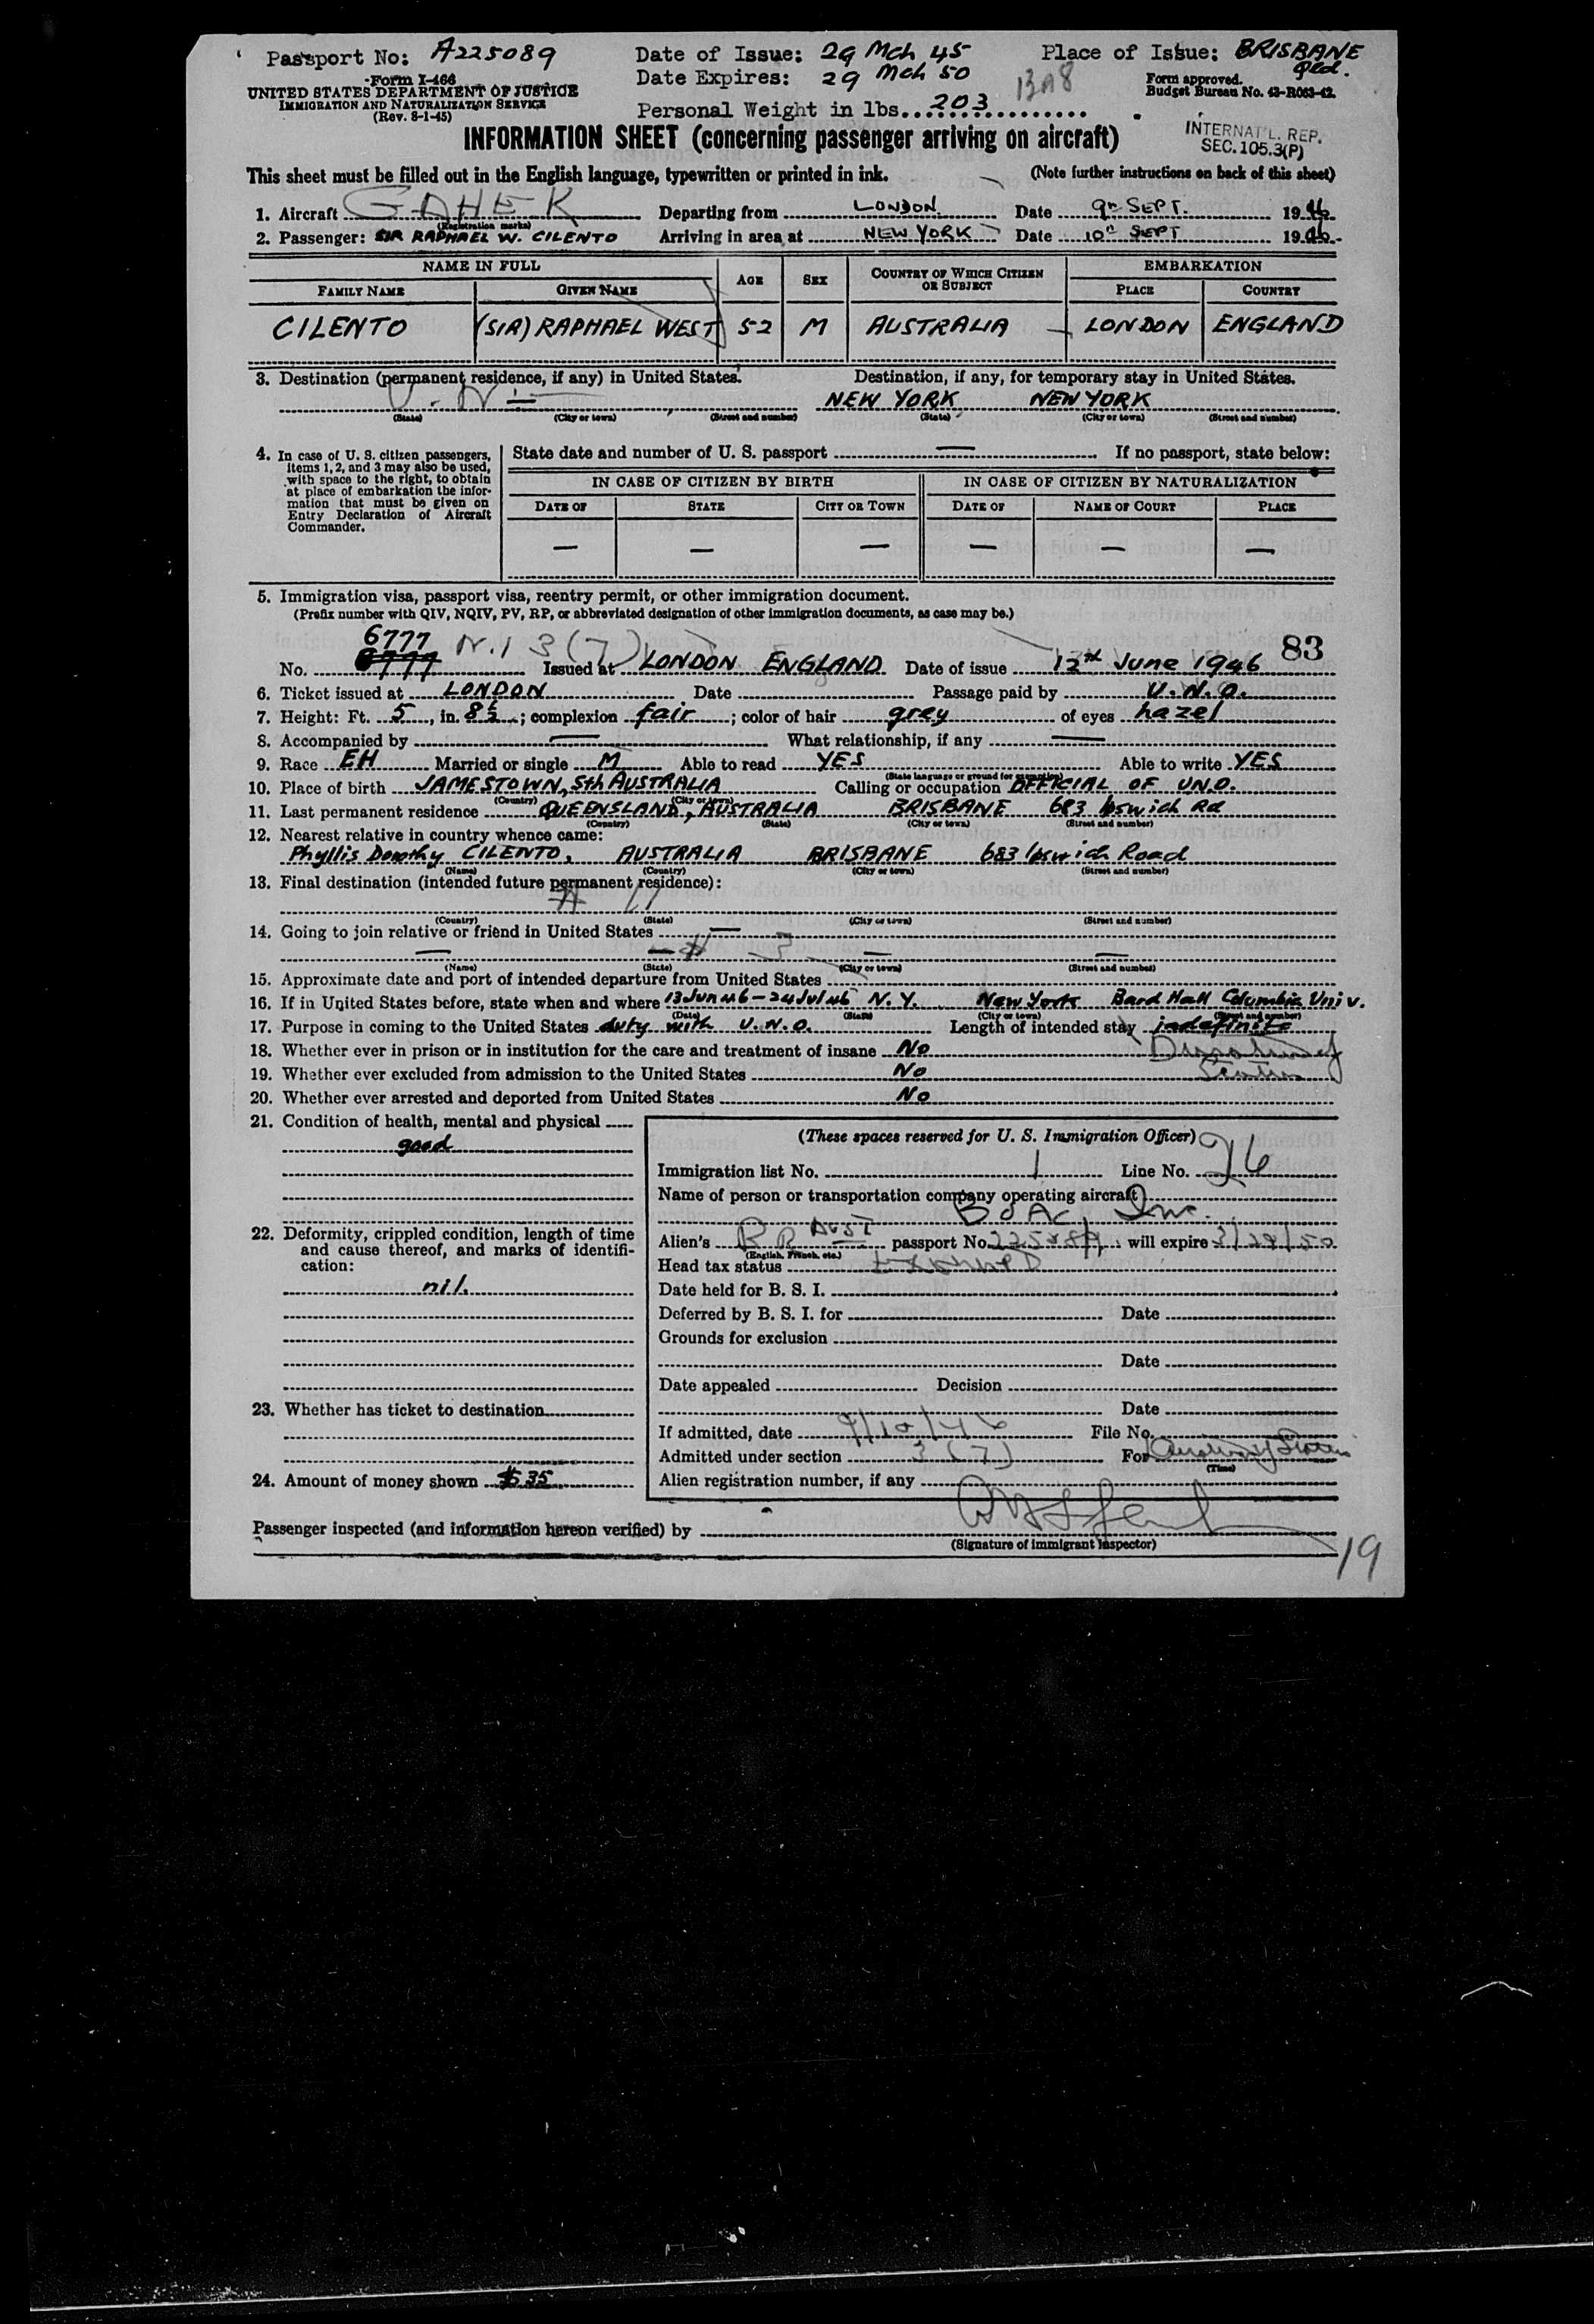 Passport No: A225089 Date of Issue: 29 Mch 45 Place of Issue: BRISBANE
Form I-466 Date Expires: 29 Mch 50 Qld.
UNITED STATES DEPARTMENT OF JUSTICE Form approved.
IMMIGRATION AND NATURALIZATION SERVICE Budget Bureau No. 43-R063-42.
(Rev. 8-1-45) Personal Weight in lbs. 203
INFORMATION SHEET (concerning passenger arriving on aircraft) INTERNAT'L. REP.
SEC. 105.3(P)
This sheet must be filled out in the English language, typewritten or printed in ink. (Note further instructions on back of this sheet)
1. Aircraft GAHEK Departing from LONDON Date 9th SEPT. 1946
(Registration marks)
2. Passenger: SIR RAPHAEL W. CILENTO Arriving in area at NEW YORK Date 10th SEPT 1946
NAME IN FULL AGE SEX COUNTRY OF WHICH CITIZEN OR SUBJECT EMBARKATION
FAMILY NAME GIVEN NAME PLACE COUNTRY
CILENTO (SIR) RAPHAEL WEST 52 M AUSTRALIA LONDON ENGLAND
3. Destination (permanent residence, if any) in United States. Destination, if any, for temporary stay in United States.
U.N. NEW YORK NEW YORK
(State) (City or town) (Street and number) (State) (City or town) (Street and number)
4. In case of U. S. citizen passengers, items 1, 2, and 3 may also be used, with space to the right, to obtain at place of embarkation the information that must be given on Entry Declaration of Aircraft Commander.
State date and number of U. S. passport — If no passport, state below:
IN CASE OF CITIZEN BY BIRTH IN CASE OF CITIZEN BY NATURALIZATION
DATE OF STATE CITY OR TOWN DATE OF NAME OF COURT PLACE
— — — — — —
5. Immigration visa, passport visa, reentry permit, or other immigration document.
(Prefix number with QIV, NQIV, PV, RP, or abbreviated designation of other immigration documents, as case may be.)
6777 3 (7) 83
No. 6777 Issued at LONDON ENGLAND Date of issue 12th June 1946
6. Ticket issued at LONDON Date Passage paid by U.N.O.
7. Height: Ft. 5, in. 8½; complexion fair; color of hair grey of eyes hazel
8. Accompanied by — What relationship, if any —
9. Race EH Married or single M Able to read YES Able to write YES
(State language or ground for exemption)
10. Place of birth JAMESTOWN, Sth AUSTRALIA Calling or occupation OFFICIAL OF U.N.O.
(Country) (City or town)
11. Last permanent residence QUEENSLAND, AUSTRALIA BRISBANE 683 Ipswich Rd
(Country) (State) (City or town) (Street and number)
12. Nearest relative in country whence came:
Phyllis Dorothy CILENTO, AUSTRALIA BRISBANE 683 Ipswich Road
(Name) (Country) (City or town) (Street and number)
13. Final destination (intended future permanent residence):
(Country) (State) (City or town) (Street and number)
14. Going to join relative or friend in United States —
— — — —
(Name) (State) (City or town) (Street and number)
15. Approximate date and port of intended departure from United States
16. If in United States before, state when and where 13 Jun 46 – 24 Jul 46 N.Y. New York Bard Hall Columbia Univ.
(Date) (State) (City or town) (Street and number)
17. Purpose in coming to the United States duty with U.N.O. Length of intended stay indefinite
18. Whether ever in prison or in institution for the care and treatment of insane No Duration of
19. Whether ever excluded from admission to the United States No Status
20. Whether ever arrested and deported from United States No
21. Condition of health, mental and physical
good
22. Deformity, crippled condition, length of time and cause thereof, and marks of identification:
nil.
23. Whether has ticket to destination
24. Amount of money shown $35
(These spaces reserved for U. S. Immigration Officer)
Immigration list No. 1 Line No. 26
Name of person or transportation company operating aircraft
BOAC, Inc.
Alien's BR AUST passport No. 225089, will expire 3/29/50
(English, French, etc.)
Head tax status EXEMPT
Date held for B. S. I.
Deferred by B. S. I. for Date
Grounds for exclusion
Date
Date appealed Decision
Date
If admitted, date 9/10/46 File No.
Admitted under section 3 (7) For Duration of Status
(Time)
Alien registration number, if any
Passenger inspected (and information hereon verified) by
(Signature of Immigrant Inspector)
19